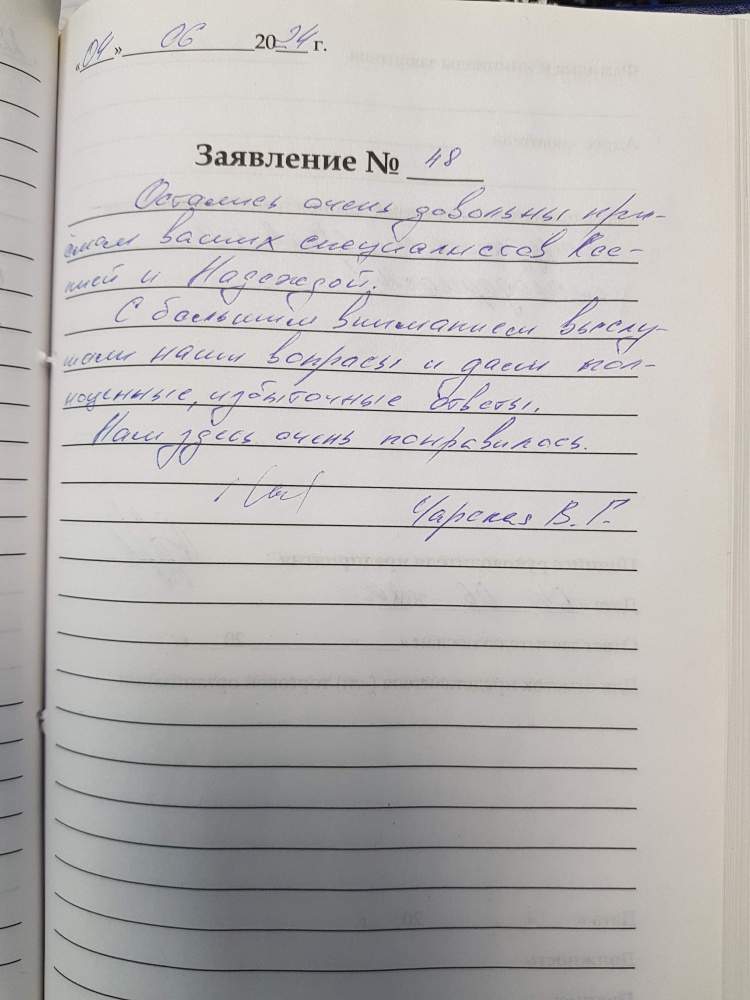 «04» 06 2024 г.
Заявление № 48
Остались очень довольны при-
ёмом ваших специалистов Ксе-
нией и Надеждой.
С большим вниманием выслу-
шали наши вопросы и дали пол-
ноценные, избыточные ответы.
Нам здесь очень понравилось.
Чарская В. Г.